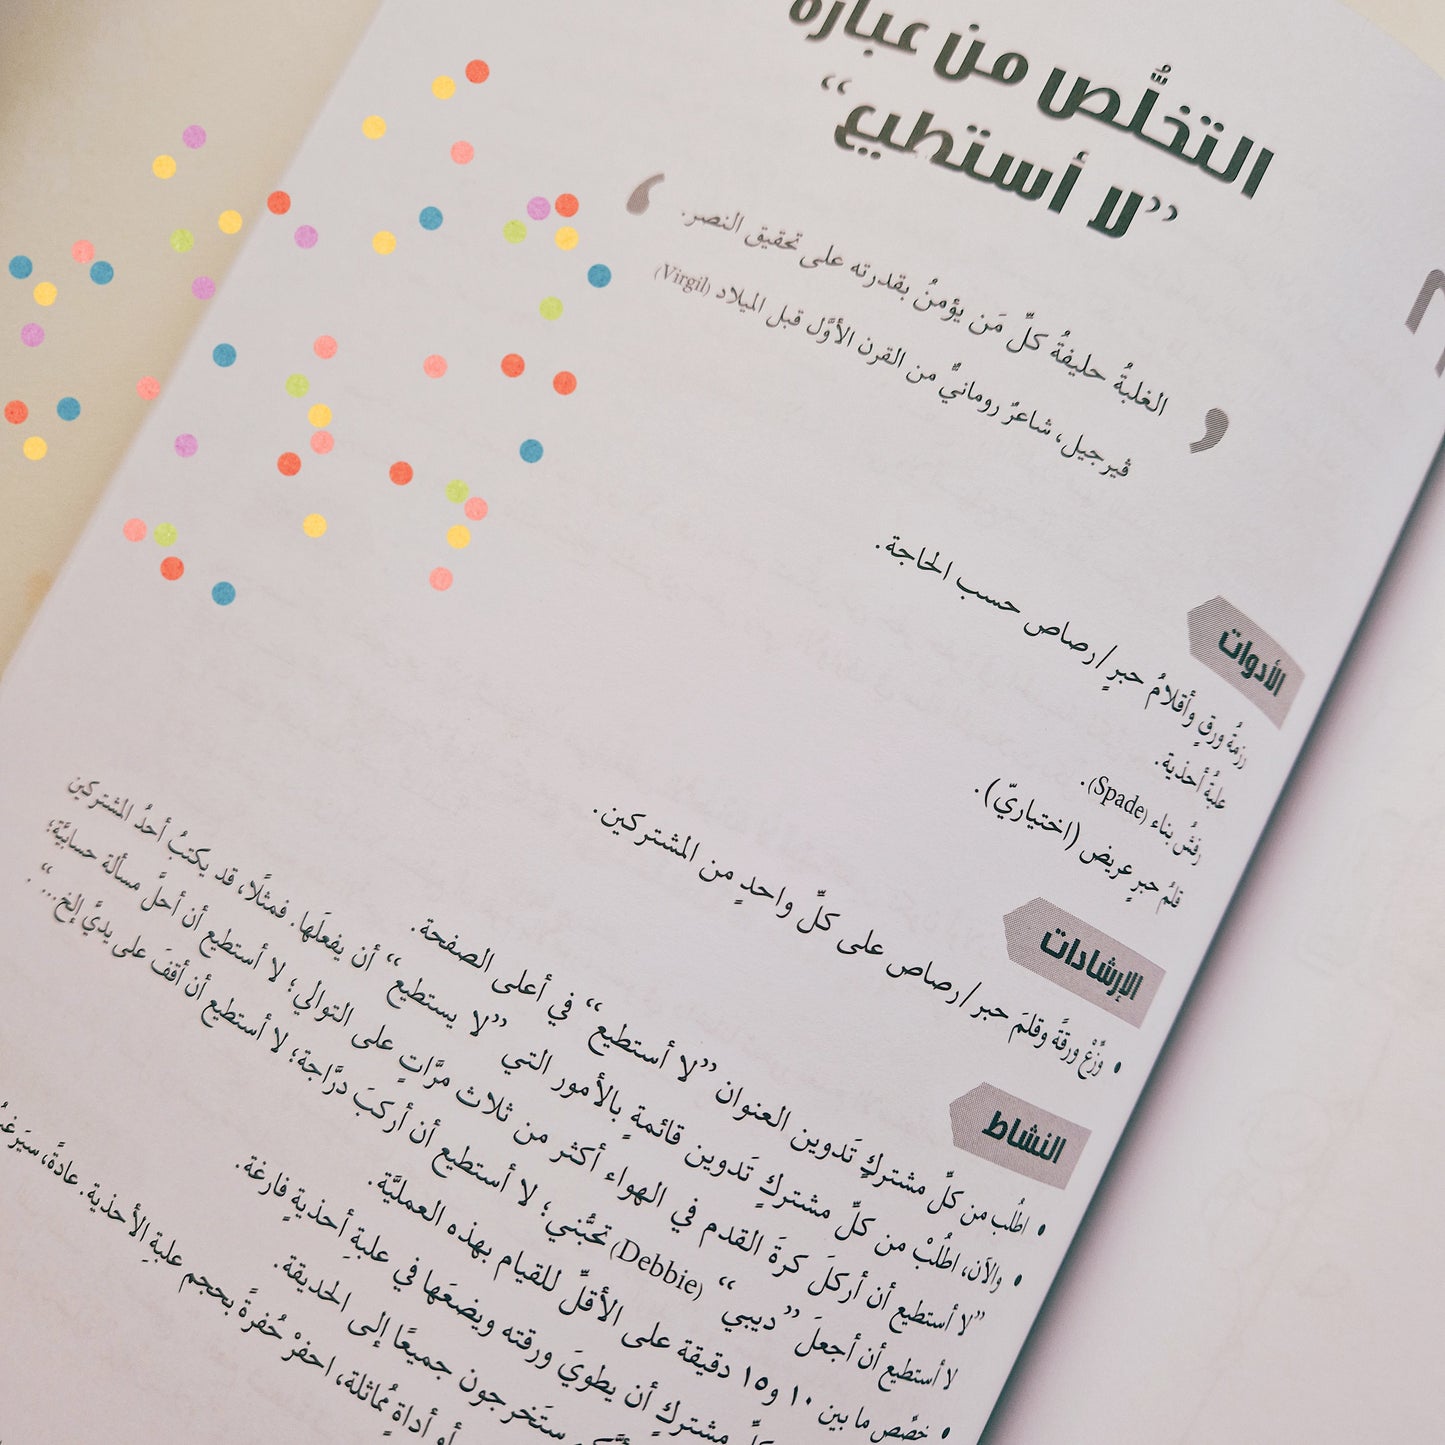 التخلُّص من عبارة
”لا أستطيع“
الغلبةُ حليفةُ كلِّ مَن يؤمنُ بقدرته على تحقيق النصر.
ڤيرجيل، شاعرٌ رومانيٌّ من القرن الأوَّل قبل الميلاد (Virgil)
الأدوات
رزمةُ ورقٍ وأقلامُ حبرٍ/رصاص حسب الحاجة.
علبةُ أحذية.
رفشُ بناء (Spade).
قلمُ حبرٍ عريض (اختياريّ).
الإرشادات
• وزِّعْ ورقةً وقلمَ حبر/رصاص على كلِّ واحدٍ من المشتركين.
النشاط
• اطلُب من كلِّ مشتركٍ تَدوين العنوان ”لا أستطيع“ في أعلى الصفحة.
• والآن، اطلُبْ من كلِّ مشتركٍ تَدوين قائمةٍ بالأمور التي ”لا يستطيع“ أن يفعلَها. فمثلًا، قد يكتبُ أحدُ المشتركين
”لا أستطيع أن أركلَ كرةَ القدم في الهواء أكثر من ثلاث مرَّاتٍ على التوالي؛ لا أستطيع أن أحلَّ مسألة حسابيَّة؛
لا أستطيع أن أجعلَ ”ديبي“ (Debbie) تحبُّني؛ لا أستطيع أن أركبَ درَّاجة؛ لا أستطيع أن أقفَ على يديَّ إلخ...“.
• خصِّص ما بين ١٠ و١٥ دقيقة على الأقلِّ للقيام بهذه العمليَّة.
كلِّ مشتركٍ أن يطويَ ورقته ويضعَها في علبةِ أحذيةٍ فارغة.
ستَخرجون جميعًا إلى الحديقة.
أو أداةٍ مُماثلة، احفرْ حُفرةً بحجم علبةِ الأحذية. عادةً،